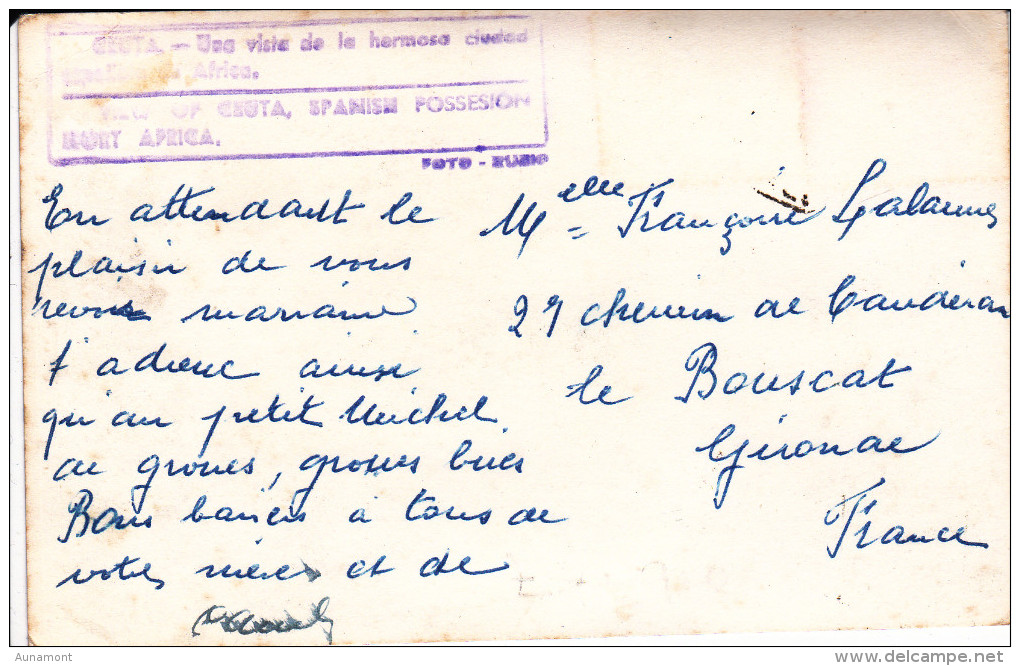 CEUTA. - Una vista de la hermosa ciudad
Africa.
VIEW OF CEUTA, SPANISH POSSESION
NORT AFRICA.
FOTO - RUBIO
En attendant le
plaisir de vous
revoir marraine
t'adresse ainsi
qu'au petit Michel
de grosses, grosses bises
Bons baisers à tous de
votre nièce et de
Mlle Françoise Lalanne
29 chemin de Caudéran
le Bouscat
Gironde
France
Aunamont
delcampe.net